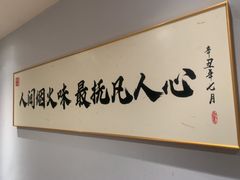 人间烟火味 最抚凡人心
辛丑年七月